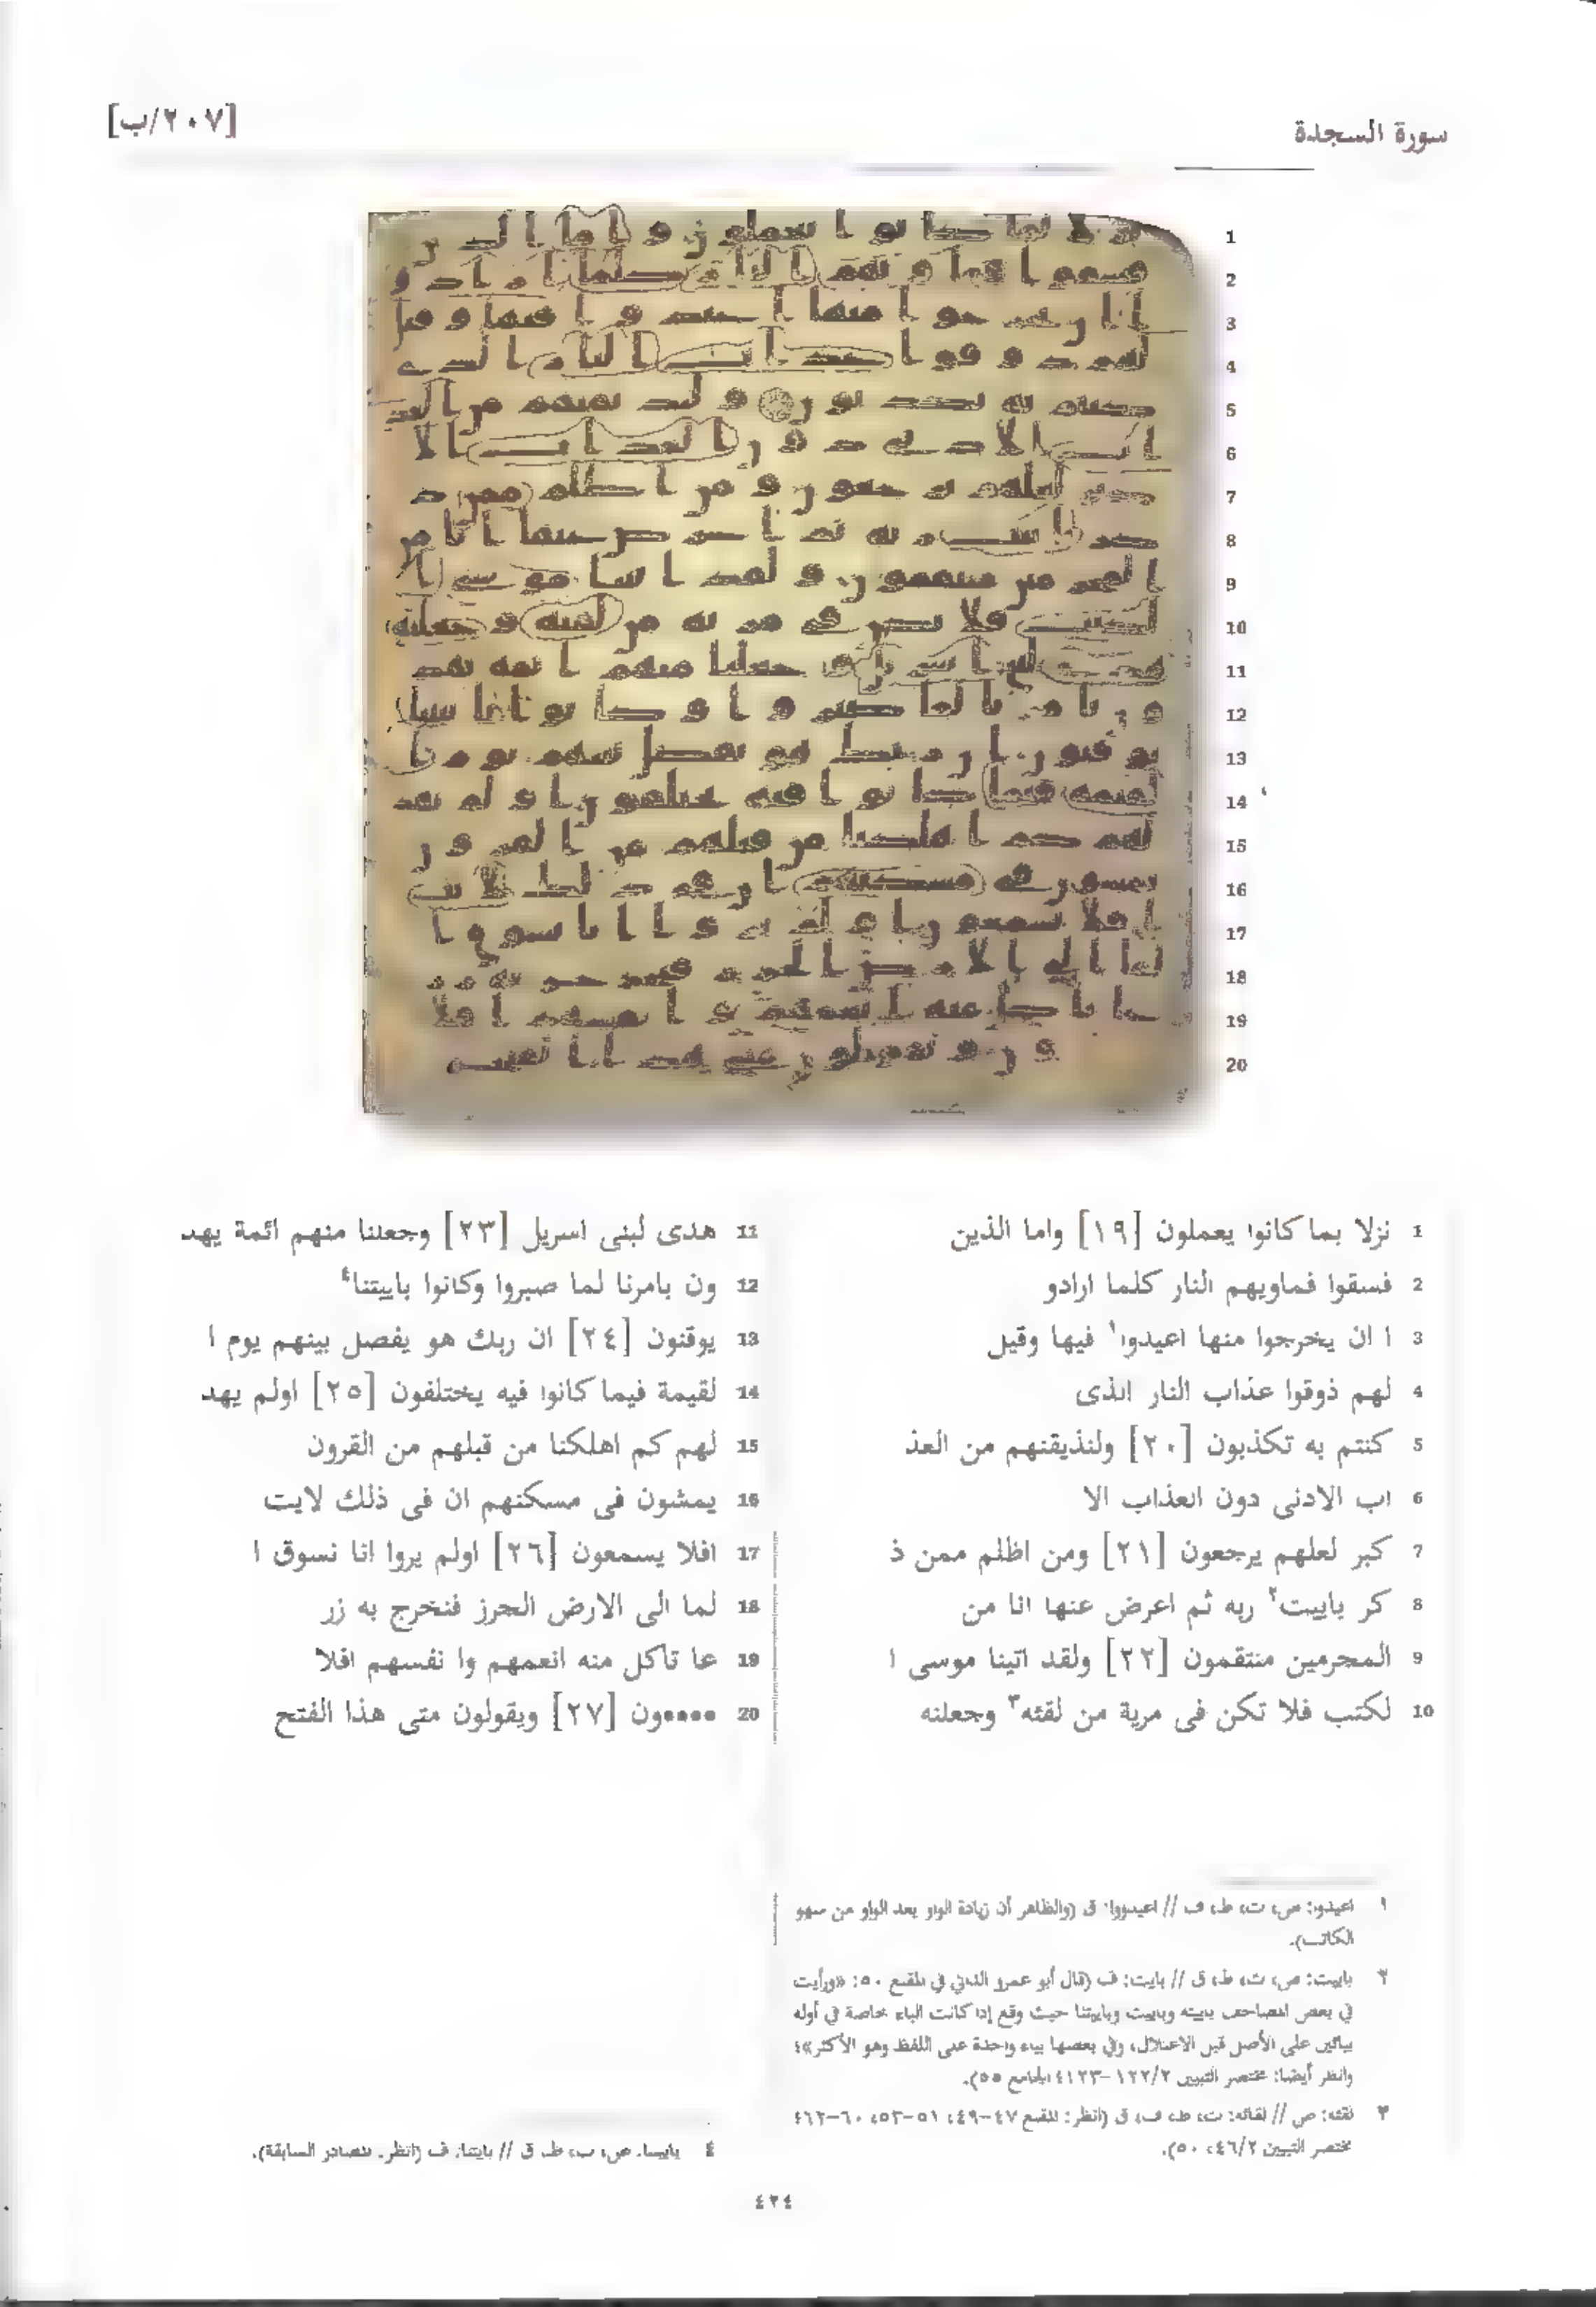 سورة السجدة
[٢٠٧/ب]
1 نزلا بما كانوا يعملون [١٩] واما الذين
2 فسقوا فماويهم النار كلما ارادو
3 ا ان يخرجوا منها اعيدوا١ فيها وقيل
4 لهم ذوقوا عذاب النار الذى
5 كنتم به تكذبون [٢٠] ولنذيقنهم من العذ
6 اب الادنى دون العذاب الا
7 كبر لعلهم يرجعون [٢١] ومن اظلم ممن ذ
8 كر باييت٢ ربه ثم اعرض عنها انا من
9 المجرمين منتقمون [٢٢] ولقد اتينا موسى ا
10 لكتب فلا تكن فى مرية من لقئه٣ وجعلنه
11 هدى لبنى اسريل [٢٣] وجعلنا منهم ائمة يهد
12 ون بامرنا لما صبروا وكانوا باييتنا٤
13 يوقنون [٢٤] ان ربك هو يفصل بينهم يوم ا
14 لقيمة فيما كانوا فيه يختلفون [٢٥] اولم يهد
15 لهم كم اهلكنا من قبلهم من القرون
16 يمشون فى مسكنهم ان فى ذلك لايت
17 افلا يسمعون [٢٦] اولم يروا انا نسوق ا
18 لما الى الارض الجرز فنخرج به زر
19 عا تاكل منه انعمهم وا نفسهم افلا
20 ••••ون [٢٧] ويقولون متى هذا الفتح
١ اعيدو: ص، ت، ط، ف // اعيدووا: ق (والظاهر أن زيادة الواو بعد الواو من سهو
الكاتب).
٢ باييت: ص، ت، ط، ق // بايت: ف (قال أبو عمرو الداني في المقنع ٥٠: «ورأيت
في بعض المصاحف باييته وباييت وباييتنا حيث وقع إذا كانت الباء خاصة في أوله
بيائين على الأصل قبل الاعتلال، وفي بعضها بياء واحدة على اللفظ وهو الأكثر»؛
وانظر أيضا: مختصر التبيين ١٢٢/٢-١٢٣؛ الجامع ٥٥).
٣ لقئه: ص // لقائه: ت، ط، ف، ق (انظر: المقنع ٤٧-٤٩، ٥١-٥٣، ٦٠-٦٢؛
مختصر التبيين ٤٦/٢، ٥٠).
٤ باييتنا: ص، ت، ط، ق // بايتنا: ف (انظر: المصادر السابقة).
٤٢٤